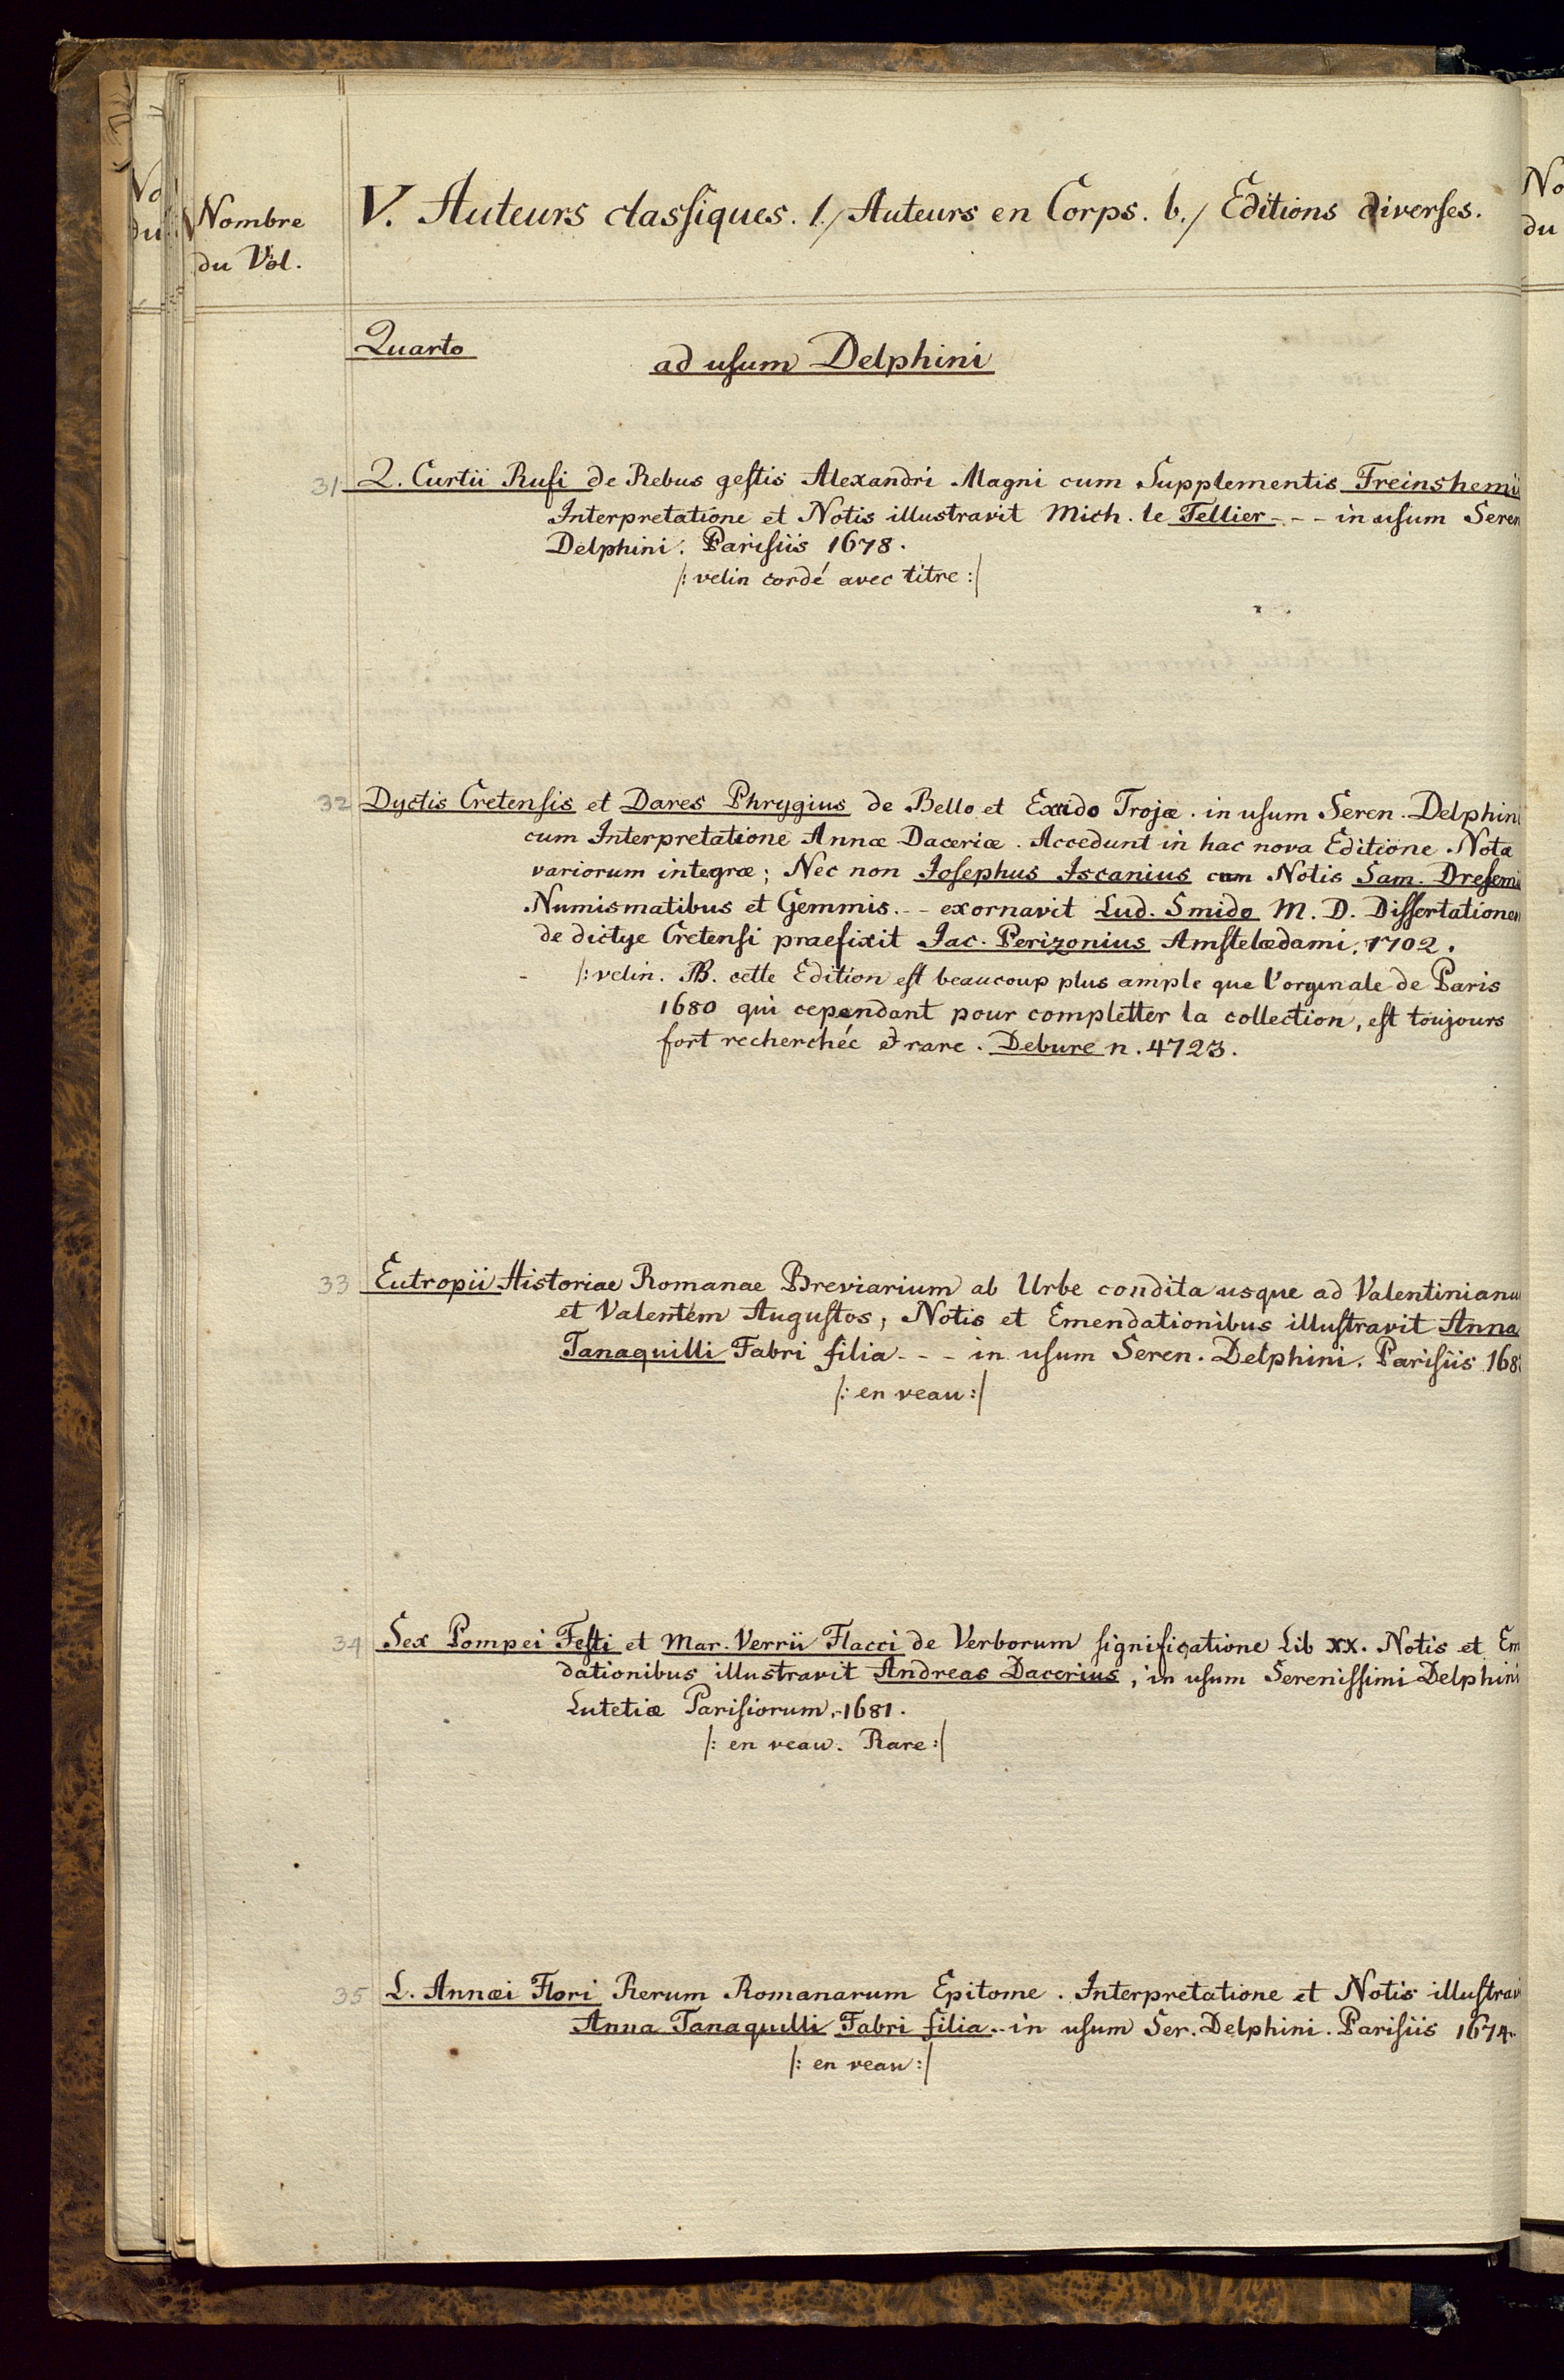 Nombre
du Vol.
V. Auteurs classiques. 1./ Auteurs en Corps. b./ Editions diverses.
Quarto
ad usum Delphini
31 Q. Curtii Rufi de Rebus gestis Alexandri Magni cum Supplementis Freinshemii
Interpretatione et Notis illustravit Mich. le Tellier - - - in usum Seren
Delphini. Parisiis 1678.
/: velin cordé avec titre :/
32 Dyctis Cretensis et Dares Phrygius de Bello et Excidio Trojæ. in usum Seren. Delphini
cum Interpretatione Annæ Daceriæ. Accedunt in hac nova Editione Notæ
variorum integræ; Nec non Josephus Iscanius cum Notis Sam. Dresemi
Numismatibus et Gemmis. - - exornavit Lud. Smids M. D. Dissertationem
de dictye Cretensi praefixit Jac. Perizonius Amstelædami, 1702.
/: velin. NB. cette Edition est beaucoup plus ample que l'orginale de Paris
1680 qui cependant pour completter la collection, est toujours
fort recherchée et rare. Debure n. 4723.
33 Eutropii Historiae Romanae Breviarium ab Urbe condita usque ad Valentinianu
et Valentem Augustos, Notis et Emendationibus illustravit Anna
Tanaquilli Fabri filia - - - in usum Seren. Delphini. Parisiis 168
/: en veau :/
34 Sex Pompei Festi et Mar. Verrii Flacci de Verborum significatione Lib XX. Notis et Em
dationibus illustravit Andreas Dacerius, in usum Serenissimi Delphini
Lutetiæ Parisiorum, 1681.
/: en veau. Rare :/
35 L. Annæi Flori Rerum Romanarum Epitome. Interpretatione et Notis illustravi
Anna Tanaquilli Fabri filia - in usum Ser. Delphini. Parisiis 1674.
/: en veau :/
No
du